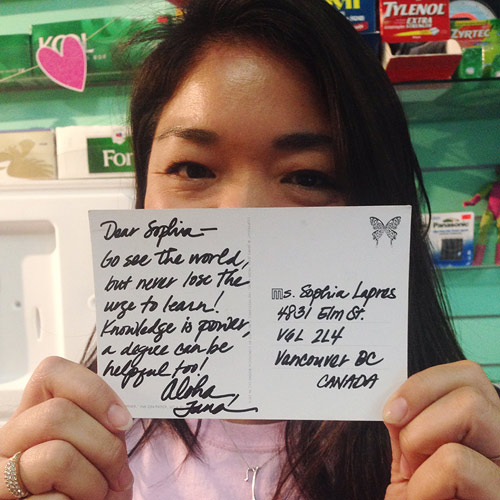 KOOL
TYLENOL
EXTRA
STRENGTH
ZYRTEC
For
Panasonic
Dear Sophia—
Go see the world,
but never lose the
urge to learn!
Knowledge is power,
a degree can be
helpful too!
Aloha,
Jana
Ms. Sophia Lapres
4831 Elm St.
V6L 2L4
Vancouver BC
CANADA